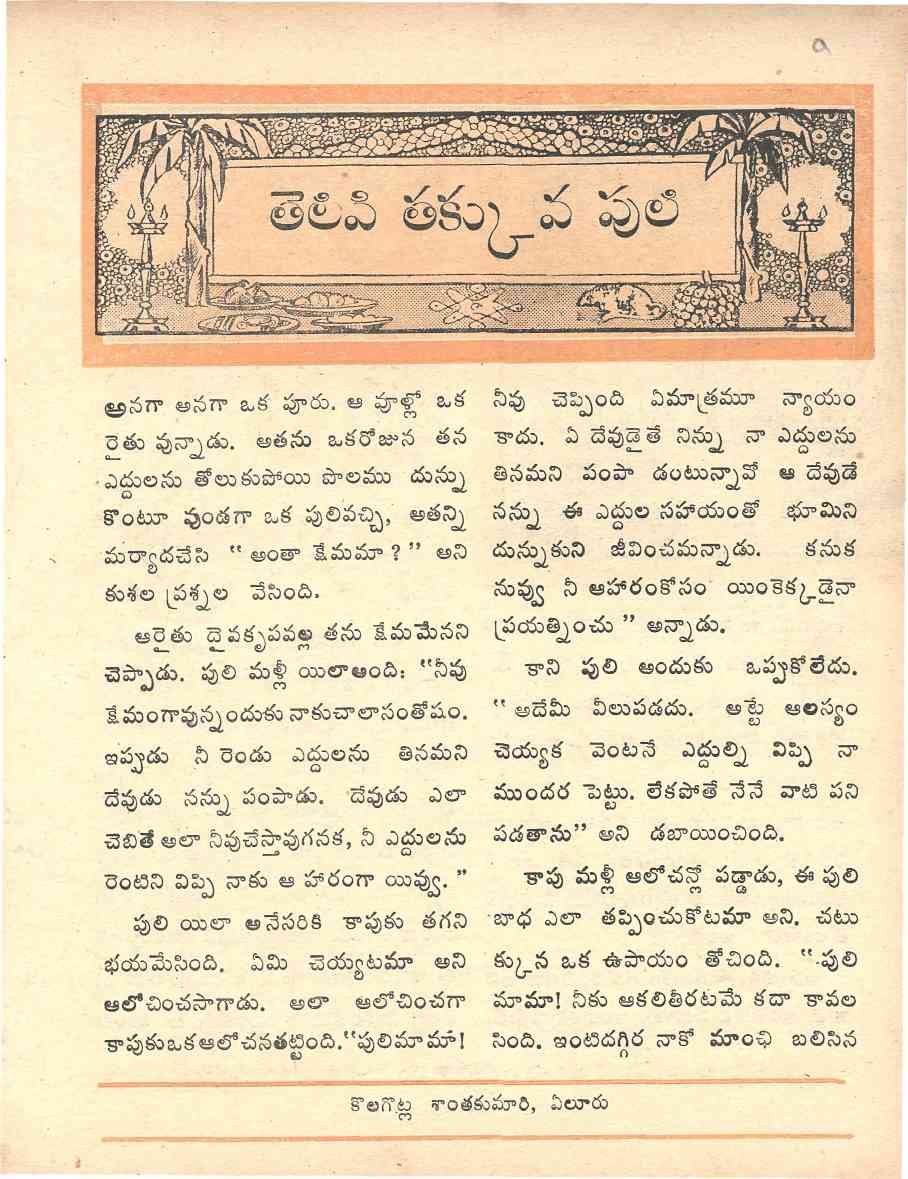 తెలివి తక్కువ పులి
అనగా అనగా ఒక పూరు. ఆ పూళ్లో ఒక
రైతు వున్నాడు. అతను ఒకరోజున తన
ఎద్దులను తోలుకుపోయి పొలము దున్ను
కొంటూ వుండగా ఒక పులివచ్చి, అతన్ని
మర్యాదచేసి “ అంతా క్షేమమా ? ” అని
కుశల ప్రశ్నల వేసింది.
ఆరైతు దైవకృపవల్ల తను క్షేమమేనని
చెప్పాడు. పులి మళ్లీ యిలాఅంది: “నీవు
క్షేమంగావున్నందుకు నాకుచాలాసంతోషం.
ఇప్పుడు నీ రెండు ఎద్దులను తినమని
దేవుడు నన్ను పంపాడు. దేవుడు ఎలా
చెబితే అలా నీవుచేస్తావుగనక, నీ ఎద్దులను
రెంటిని విప్పి నాకు ఆ హారంగా యివ్వు. ”
పులి యిలా అనేసరికి కాపుకు తగని
భయమేసింది. ఏమి చెయ్యటమా అని
ఆలోచించసాగాడు. అలా ఆలోచించగా
కాపుకుఒకఆలోచనతట్టింది.“పులిమామా!
నీవు చెప్పింది ఏమాత్రమూ న్యాయం
కాదు. ఏ దేవుడైతే నిన్ను నా ఎద్దులను
తినమని పంపా డంటున్నావో ఆ దేవుడే
నన్ను ఈ ఎద్దుల సహాయంతో భూమిని
దున్నుకుని జీవించమన్నాడు. కనుక
నువ్వు నీ ఆహారంకోసం యింకెక్కడైనా
ప్రయత్నించు ” అన్నాడు.
కాని పులి అందుకు ఒప్పుకోలేదు.
“ అదేమీ వీలుపడదు. అట్టే ఆలస్యం
చెయ్యక వెంటనే ఎద్దుల్ని విప్పి నా
ముందర పెట్టు. లేకపోతే నేనే వాటి పని
పడతాను” అని డబాయించింది.
కాపు మళ్లీ ఆలోచన్లో పడ్డాడు, ఈ పులి
బాధ ఎలా తప్పించుకోటమా అని. చటు
క్కున ఒక ఉపాయం తోచింది. “పులి
మామా! నీకు ఆకలితీరటమే కదా కావల
సింది. ఇంటిదగ్గిర నాకో మాంఛి బలిసిన
కొలగొట్ల శాంతకుమారి, ఏలూరు